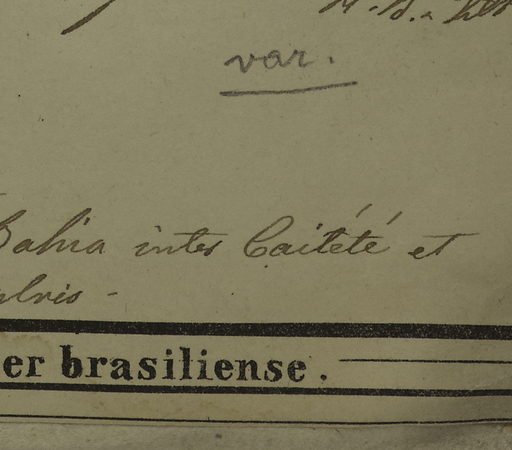 var.
Bahia inter Caitété et
er brasiliense.